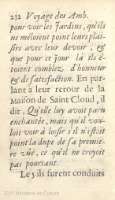 232 Voyage des Amb.
pour voir les Jardins, qu'ils
ne mêlerent point leurs plai-
sirs avec leur devoir, & 
que pour ce jour là ils é-
toient comblez d'honneur
& de satisfaction. En par-
lant à leur retour de la
Maison de Saint Cloud, il
dit, Qu'elle luy avoit paru
enchantée, mais qu'il vou-
loit voir à loisir s'il n'estoit
point la dupe de sa premie-
re veuë, ce qu'il ne croyoit
pas pourtant.
Le 5 ils furent conduits